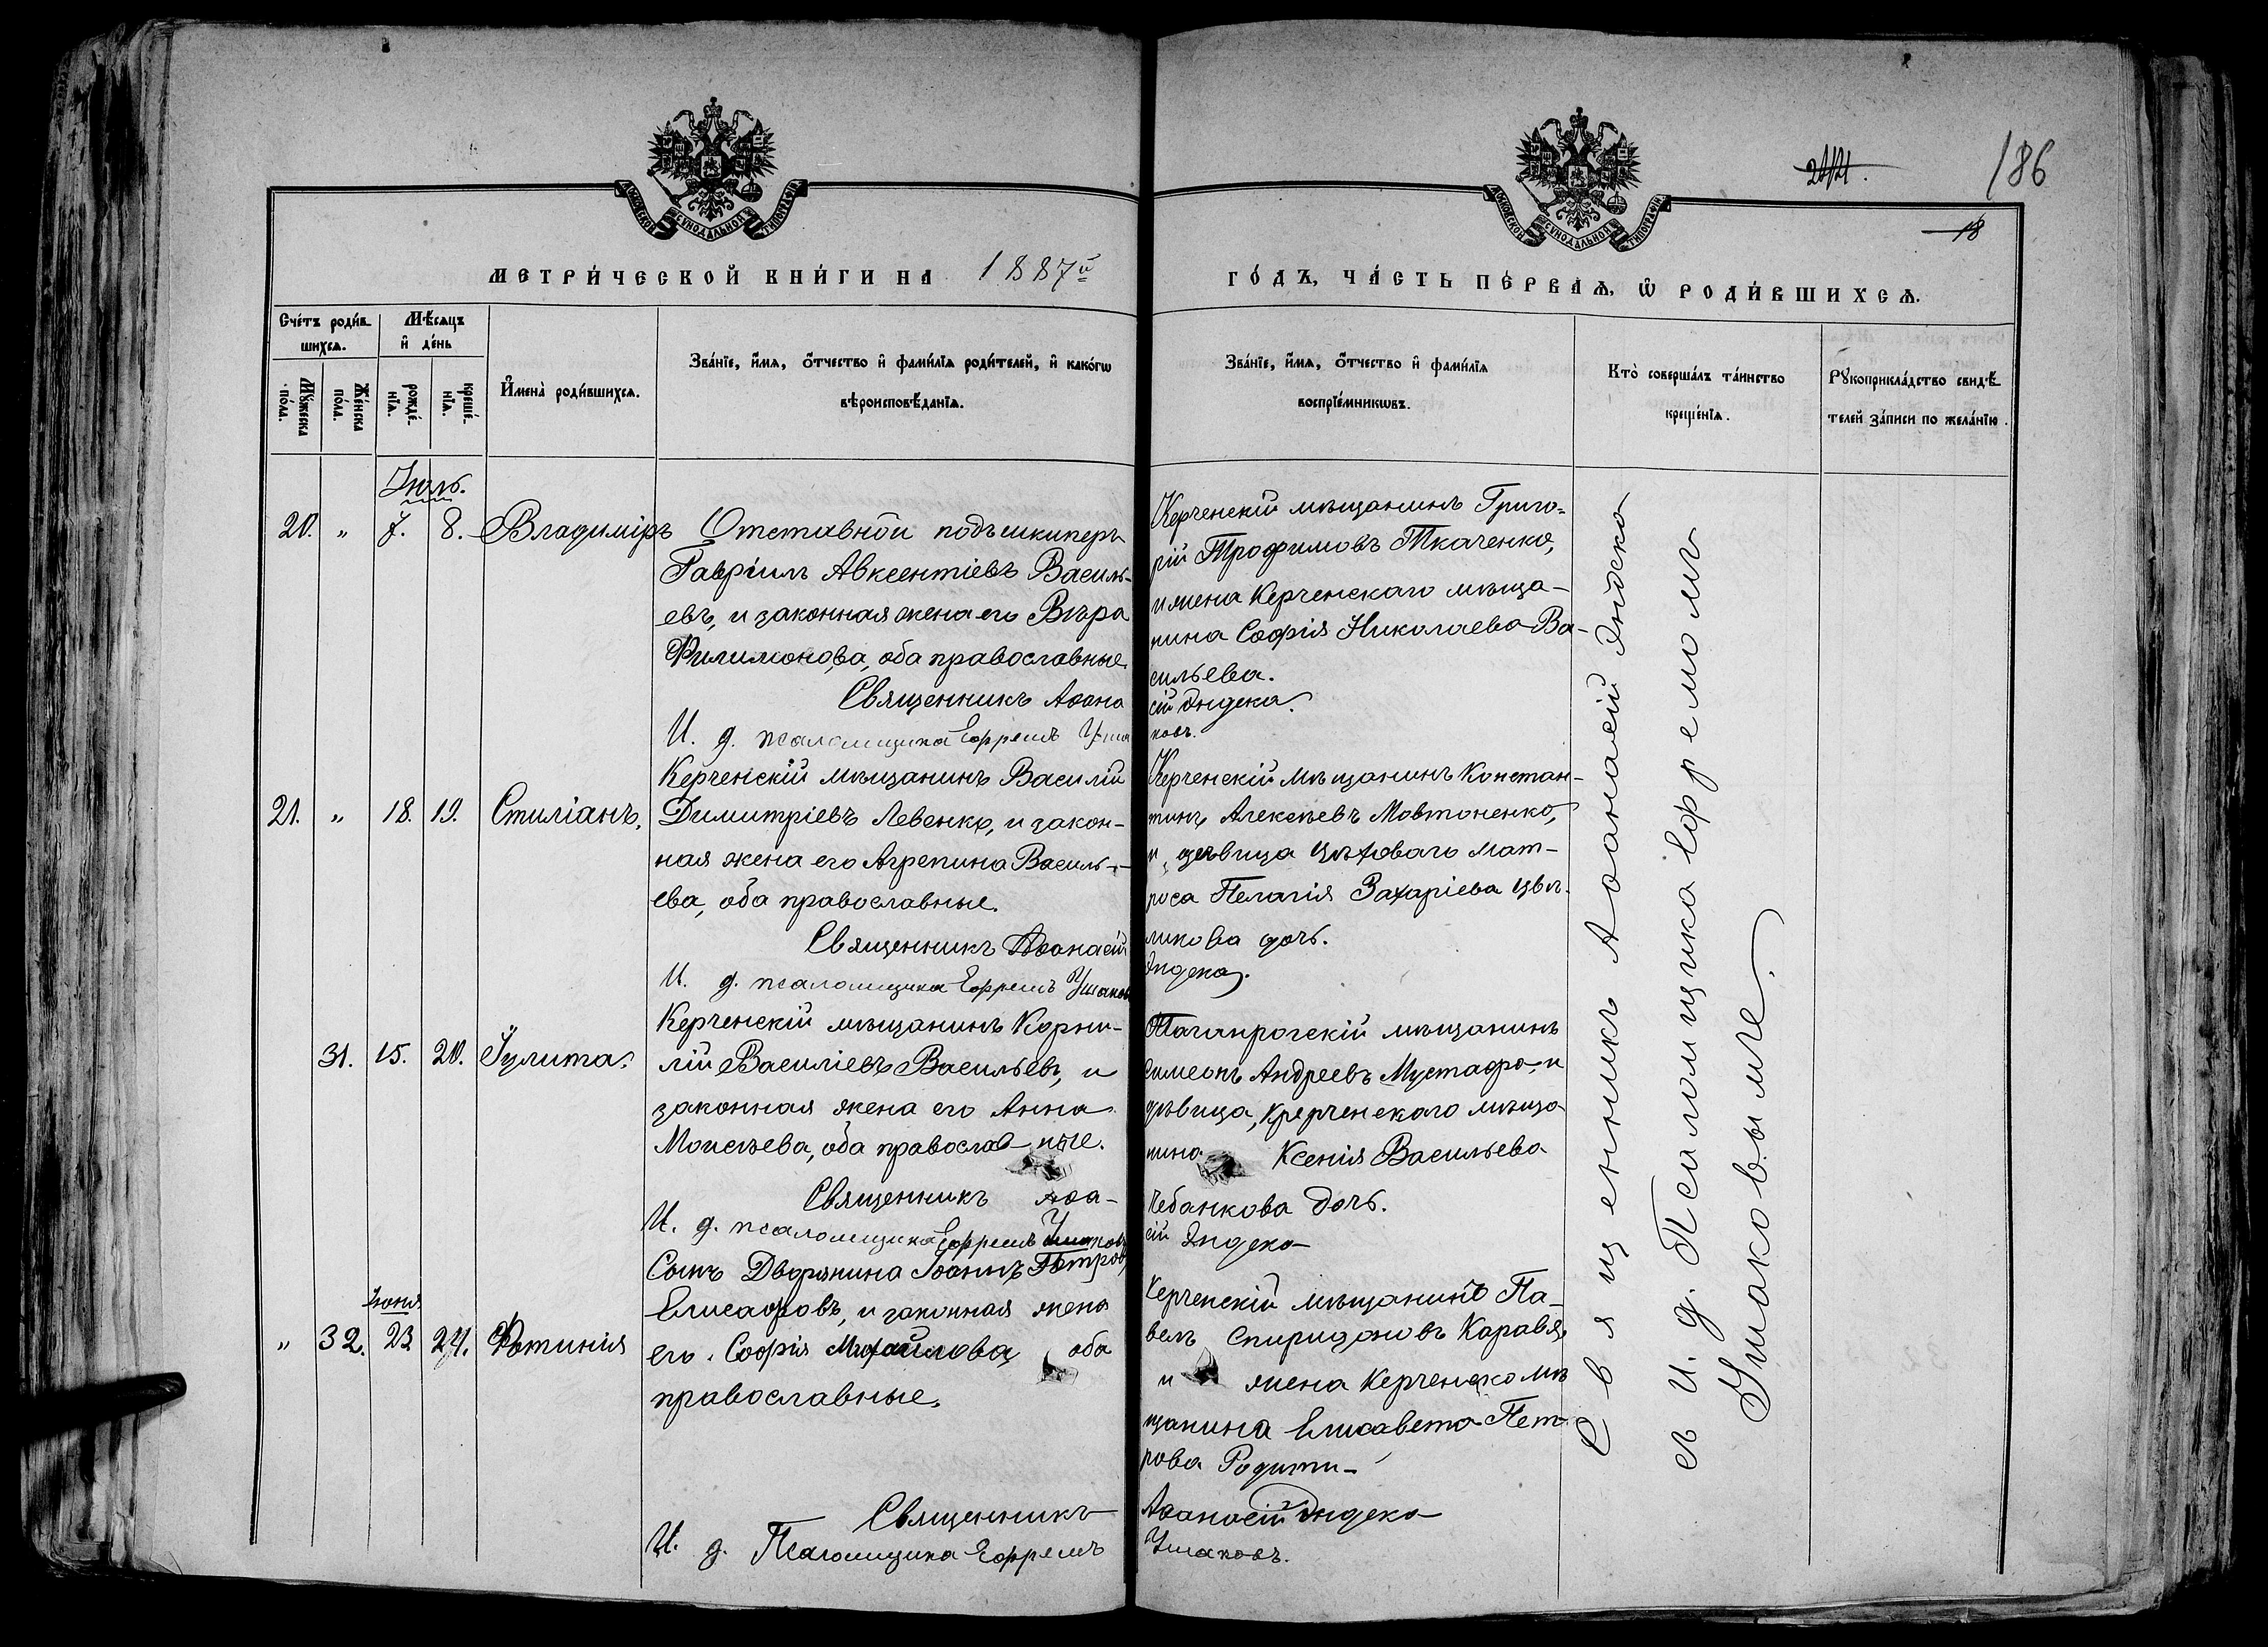 186
18
МОСКОВСКОЙ СУНОДАЛЬНОЙ ТИПОГРАФІИ
МОСКОВСКОЙ СУНОДАЛЬНОЙ ТИПОГРАФІИ
МЕТРИ́ЧЕСКОЙ КНИ́ГИ НА 1887й
ГО́ДЪ, ЧА́СТЬ ПЕ́РВАѦ, Ѽ РОДИ́ВШИХСѦ.
Сче́тъ роди́в-
шихсѧ.
Мꙋжеска
по́ла.
Же́нска
по́ла.
Мѣ́сѧцъ
и҆ де́нь
рожде́-
нїѧ.
креще́-
нїѧ.
И҆мена̀ роди́вшихсѧ.
Зва́нїе, и҆́мѧ, ѻ҆́тчество и҆ фами́лїѧ роди́телей, и҆ како́гѡ
вѣроисповѣ́данїѧ.
Зва́нїе, и҆́мѧ, ѻ҆́тчество и҆ фами́лїѧ
воспрїе́мникѡвъ.
Кто̀ соверша́лъ та́инство
креще́нїѧ.
Рꙋкоприкла́дство свидѣ́-
телей за́писи по жела́нїю.
Іюль.
20. „ 7. 8. Владиміръ
Отставной подъшкиперъ
Гавріилъ Авксентіевъ Василь-
евъ, и законная жена его Вѣра
Филимонова, оба православные.
Священникъ Аѳана
И. д. псаломщика Ефремъ Уша
Керченскій мѣщанинъ Григо-
рій Трофимовъ Ткаченко,
и жена Керченскаго мѣща-
нина Софія Николаева Ва-
сильева.
сій Эндека.
ковъ.
21. „ 18. 19. Стиліанъ.
Керченскій мѣщанинъ Василій
Димитріевъ Левенко, и закон-
ная жена его Агрепина Василь-
ева, оба православные.
Священникъ Аѳанасій
И. д. псаломщика Ефремъ Ушаковъ
Керченскій мѣщанинъ Констан-
тинъ Алексѣевъ Мовтоненко,
и дѣвица Цѣховаго мат-
роса Пелагія Захаріева
ликова дочь.
Эндека.
31. 15. 20. Іулита.
Керченскій мѣщанинъ Корни-
лій Василіевъ Васильевъ, и
законная жена его Анна
Моисѣева, оба православ-ные.
Священникъ Аѳа-
И. д. псаломщика Ефремъ Ушаковъ
Таганрогскій мѣщанинъ
Симеонъ Андреевъ Мустафа, и
дѣвица, Керченскаго мѣща
нина Ксенія Васильева
Чебанкова дочь.
сій Эндека
Іюня
„ 32. 23 24. Фотинія
Сынъ Дворянина Іоаннъ Петровъ
Елисафовъ, и законная жена
его Софія Михайлова, оба
православные.
Священникъ
И. д. Псаломщика Ефремъ
Керченскій мѣщанинъ Па-
велъ Спиридоновъ Каравя,
и жена Керченско мѣ
щанина Елисавета Пет
рова Родити-
Аѳанасій Эндека
Ушаковъ.
Священникъ Аѳанасій Эндека
съ И. д. Псаломщика Ефремомъ
Ушаковымъ.